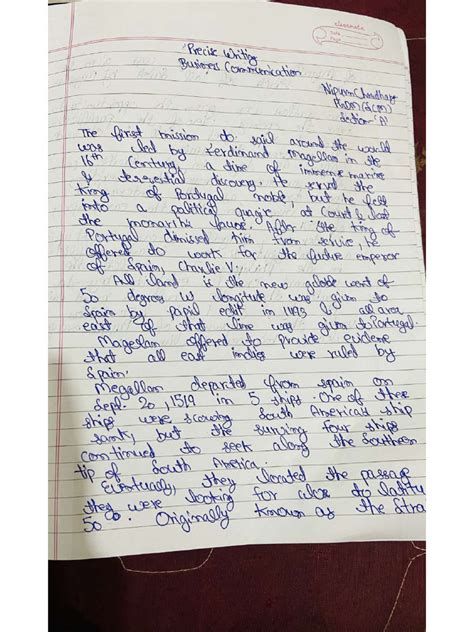 classmate
Date
Page
Precise Writing
Business Communication
Nipunn Chaudhary
PGDM (SCM)
Section 'A'
The first mission do sail around the world
was led by Ferdinand Magellam in the
16th Century, a time of immense marine
& terrestial discovery. He served the
King of Pordugal noble, but he fell
into a political at Court & lost
the monarchs favor. After the king of
Portugal dismissed him from service, he
offered do work for the future emperor
of Spain, Charlie V.
All land is the new globe west of
50 degrees W longitute was given to
Spain by papal edit in 1493 & all area
east of that line was given to Portugal.
Magellam offered to provide evidene
that all east indies were ruled by
Spain.
Megellam departed from spain on
Sept. 20, 1519 in 5 ships. One of these
ships were South American ship
sank, but the four ships
continued to seek along the Southern
tip of South America.
Eventually, they located the passage
they were looking for close to latitu
50. Originally known as the Stra